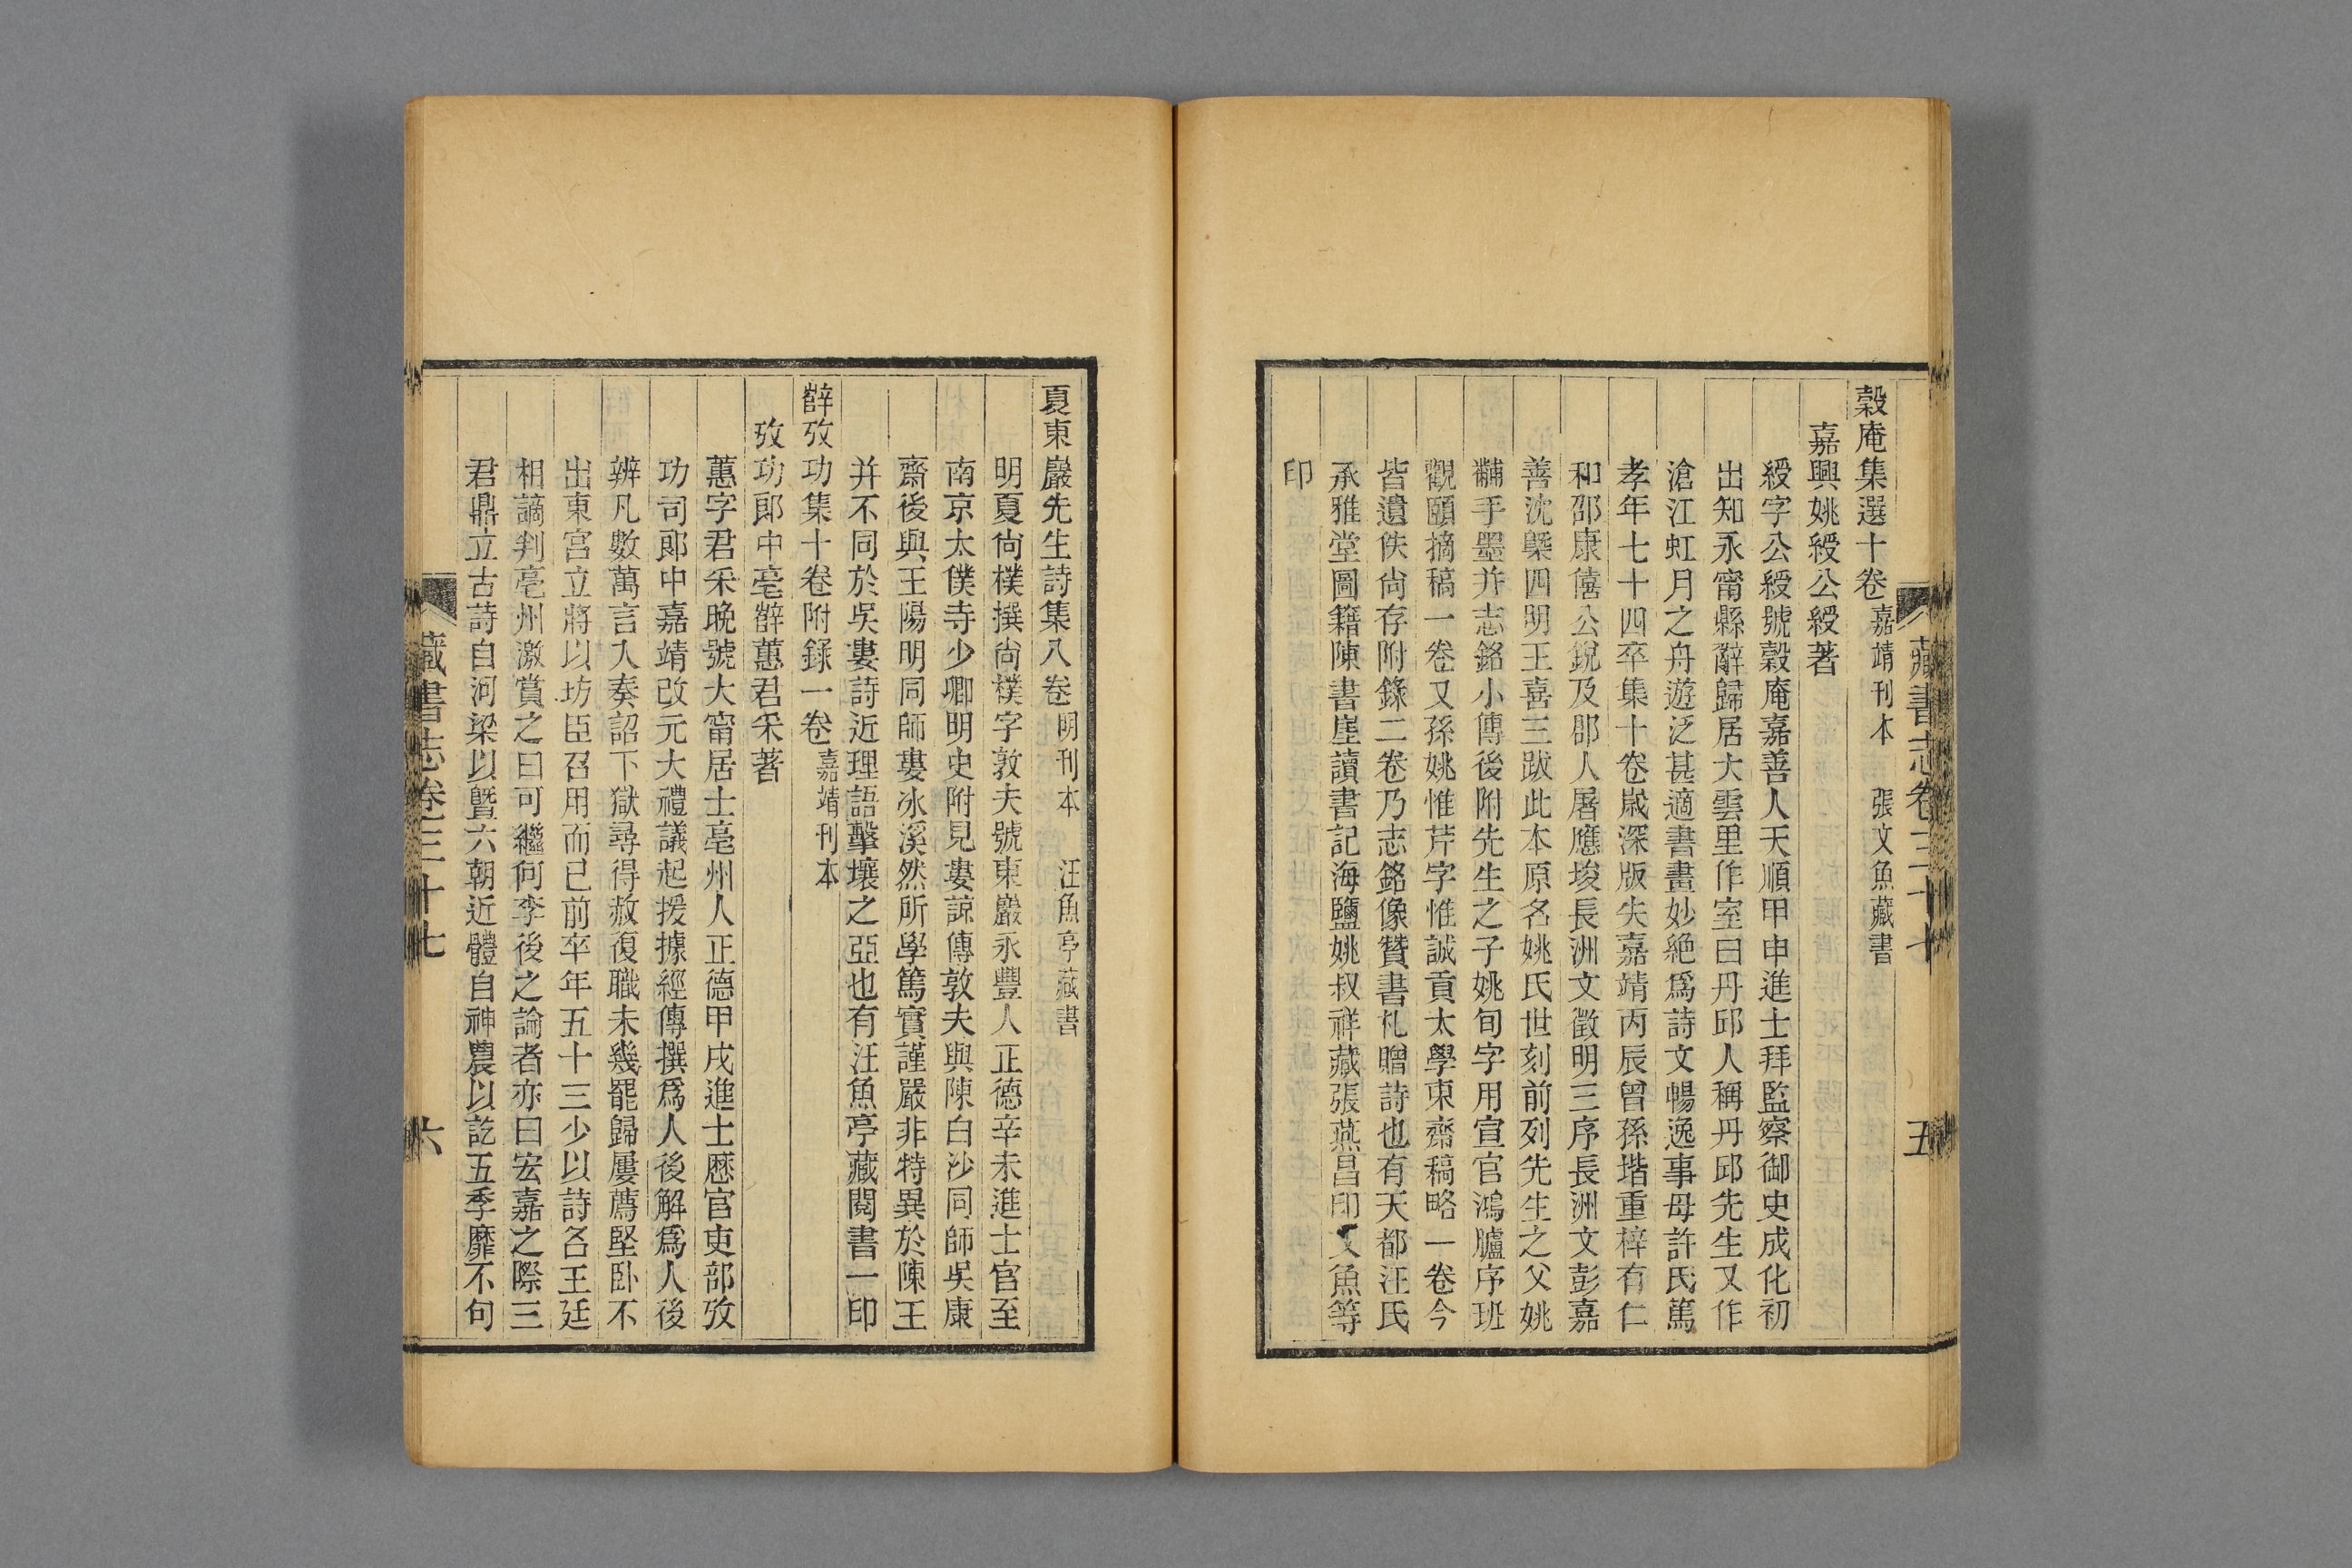 藏書志卷三十七 五
穀庵集選十卷 嘉靖刊本 張文魚藏書
嘉興姚綬公綬著
綬字公綬號穀庵嘉善人天順甲申進士拜監察御史成化初
出知永甯縣辭歸居大雲里作室曰丹邱人稱丹邱先生又作
滄江虹月之舟遊泛甚適書畫妙絕爲詩文暢逸事母許氏篤
孝年七十四卒集十卷歲深版失嘉靖丙辰曾孫堦重梓有仁
和邵康僖公銳及郡人屠應埈長洲文徵明三序長洲文彭嘉
善沈槩四明王喜三跋此本原名姚氏世刻前列先生之父姚
黼手墨并志銘小傳後附先生之子姚旬字用宣官鴻臚序班
觀頤摘稿一卷又孫姚惟芹字惟誠貢太學東齋稿略一卷今
皆遺佚尙存附錄二卷乃志銘像贊書札贈詩也有天都汪氏
承雅堂圖籍陳書崖讀書記海鹽姚叔祥藏張燕昌印文魚等
印
夏東巖先生詩集八卷 明刊本 汪魚亭藏書
明夏尙樸撰尙樸字敦夫號東巖永豐人正德辛未進士官至
南京太僕寺少卿明史附見婁諒傳敦夫與陳白沙同師吳康
齋後與王陽明同師婁冰溪然所學篤實謹嚴非特異於陳王
并不同於吳婁詩近理語擊壤之亞也有汪魚亭藏閱書一印
薛攷功集十卷附錄一卷 嘉靖刊本
攷功郞中亳薛蕙君采著
蕙字君采晩號大甯居士亳州人正德甲戌進士歷官吏部攷
功司郞中嘉靖改元大禮議起援據經傳撰爲人後解爲人後
辨凡數萬言入奏詔下獄尋得赦復職未幾罷歸屢薦堅卧不
出東宮立將以坊臣召用而已前卒年五十三少以詩名王廷
相謫判亳州激賞之曰可繼何李後之論者亦曰宏嘉之際三
君鼎立古詩自河梁以曁六朝近體自神農以訖五季靡不句
藏書志卷三十七 六